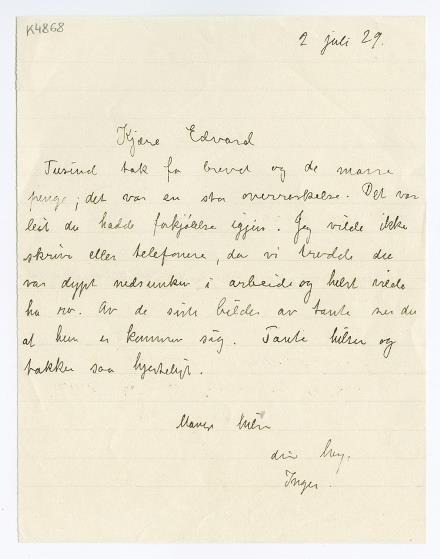 K4868
2 juli 29.
Kjære Edvard
Tusind tak for brevet og de mange
penge; det var en stor overraskelse. Det var
leit du hadde forkjølelse igjen. Jeg vilde ikke
skrive eller telefonere, da vi trodde du
var dypt nedsunken i arbeide og helst vilde
ha ro. Av de siste bilder av tante ser du
at hun er kommen sig. Tante hilser og
takker saa hjerteligst.
Mange hilsn
din
Inger.